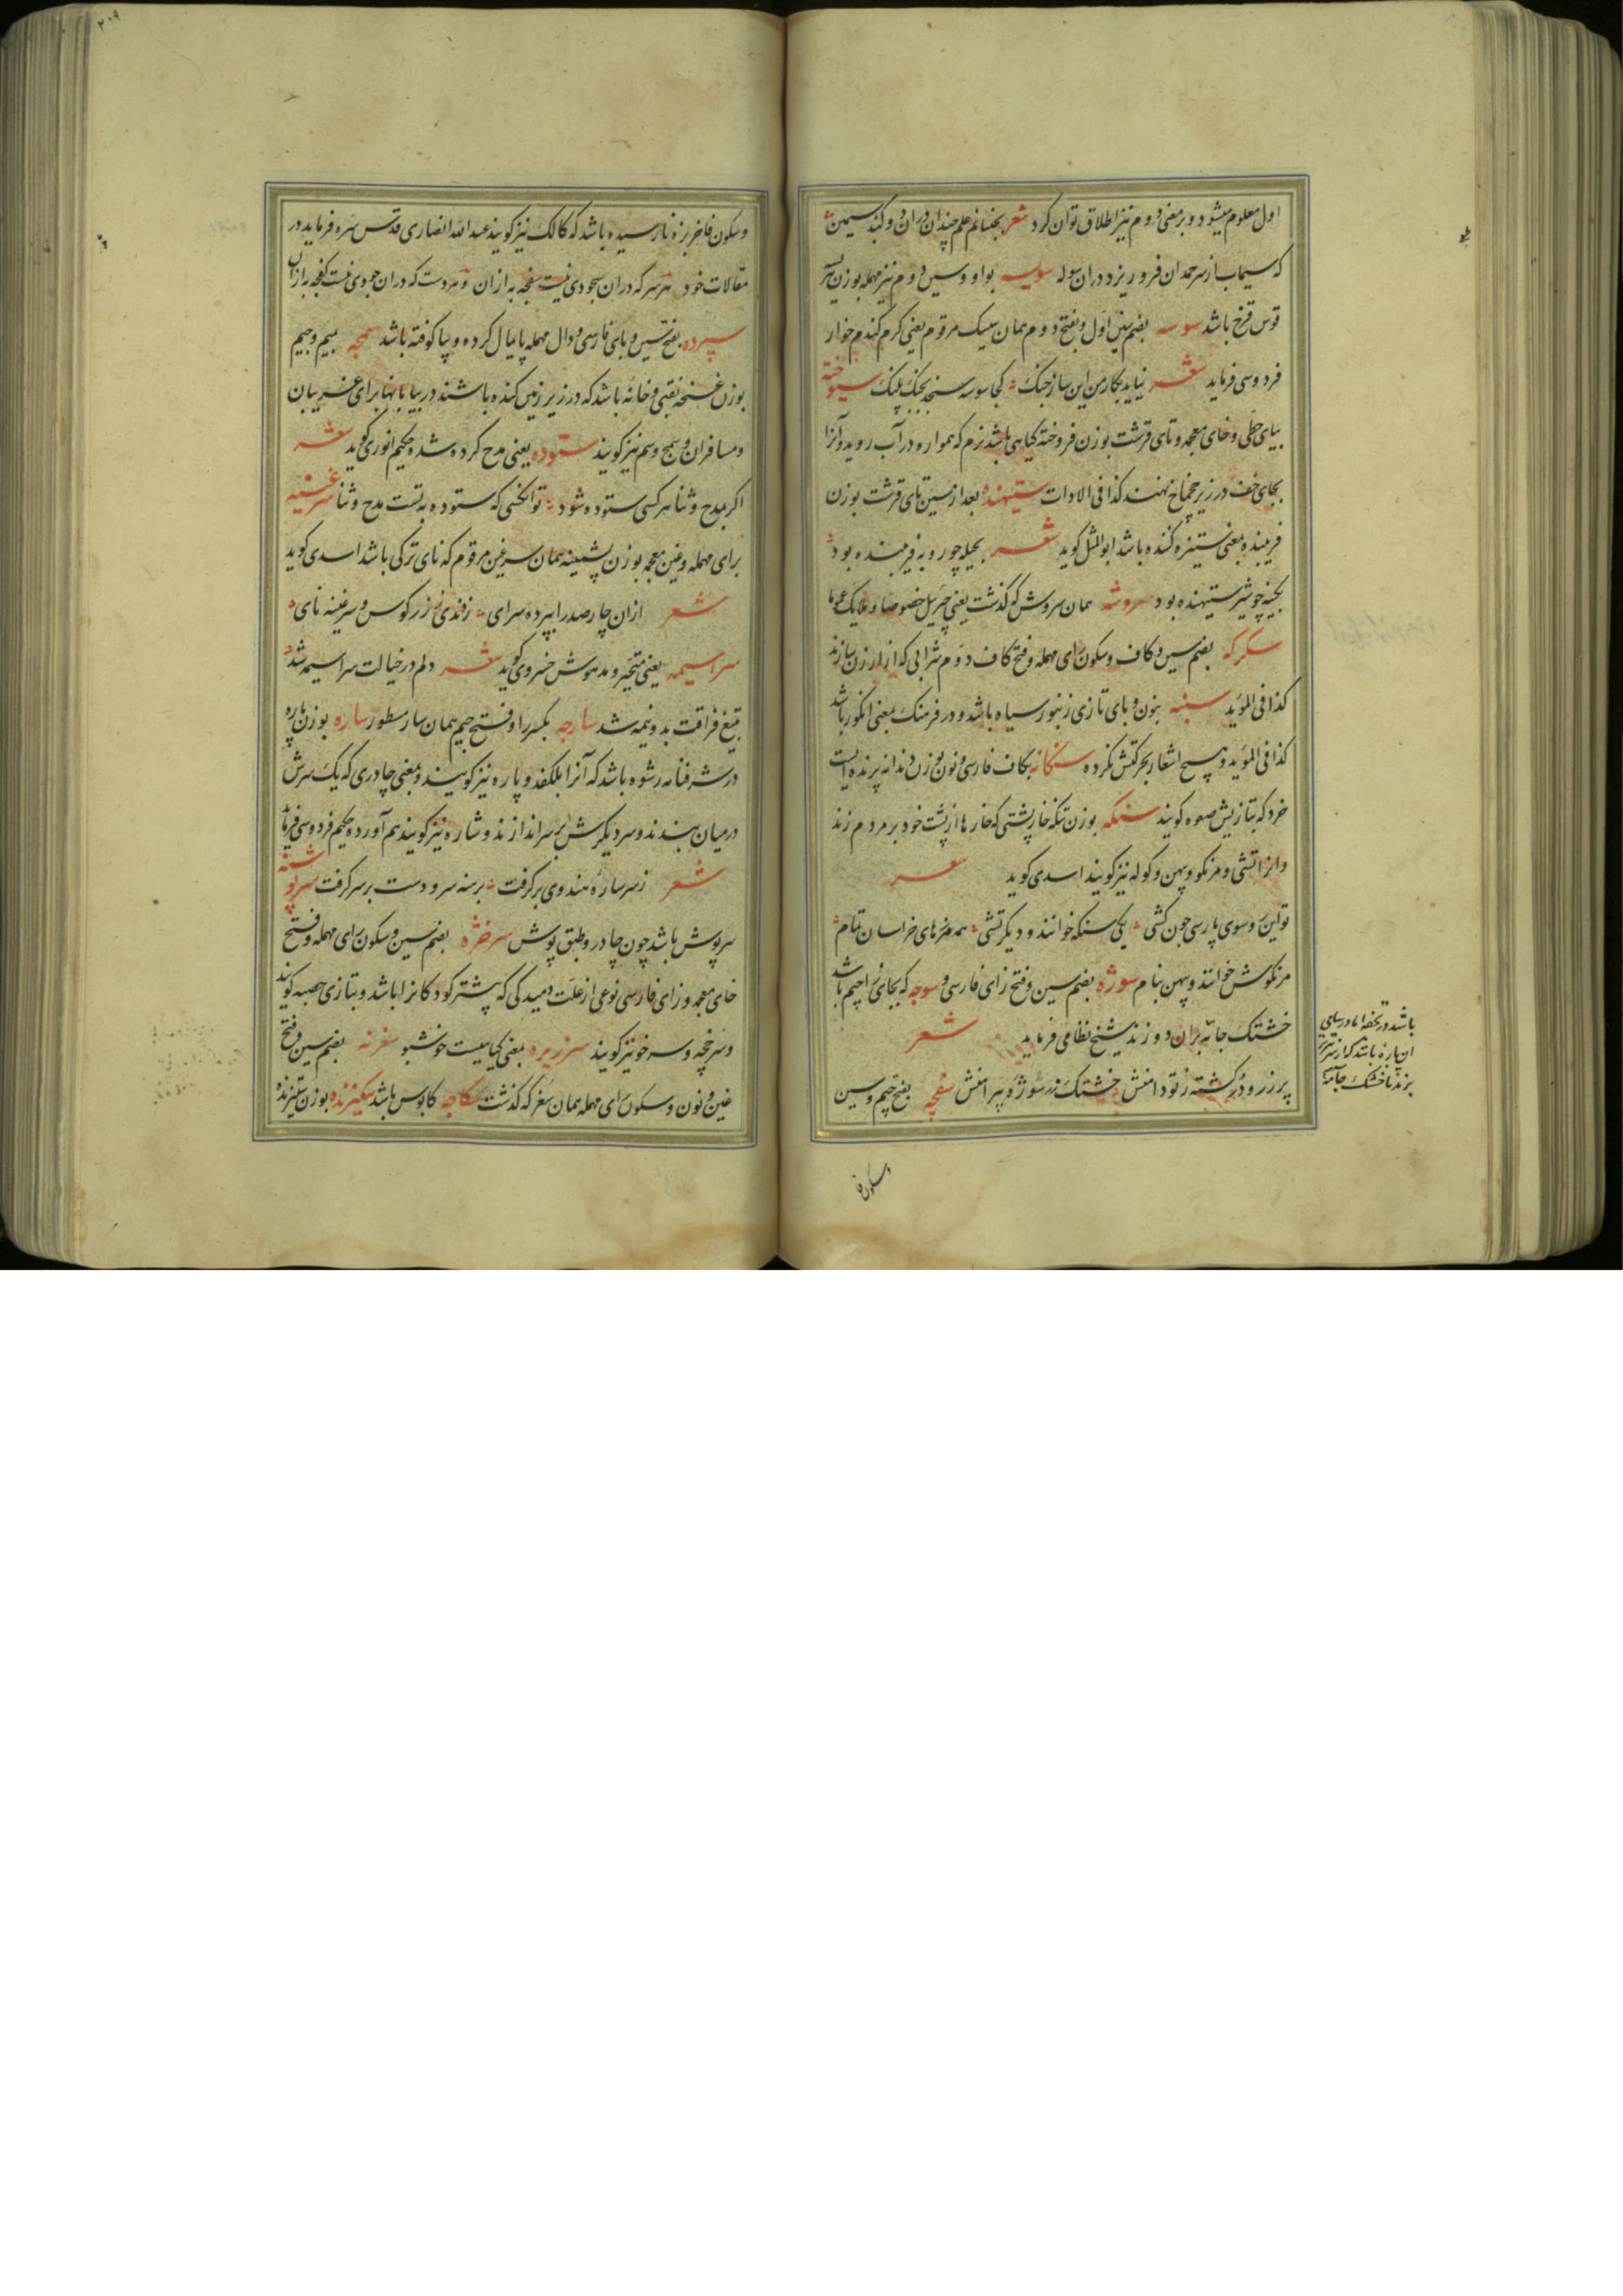 اول معلوم میشود و بر معنی دوم نیز اطلاق توان کرد شعر بجنبانم علم چندان در ان دو کنبد سیمین
که سیماب از سر حمدان فرو ریزد در ان سوله سویسه بواو و سین دوم نیز مهمله بوزن
قوس قزح باشد سوسه بضم سین اول و بفتح دوم همان سیسک مرقوم یعنی کرم کندم خوار
فردوسی فرماید شعر نیاید بکار من این ساز جنک کجا سوسه سنجد بجنک پلنک سیوخته
بیای حطی و خای معجمه و تای قرشت بوزن فروخته کیاهی باشد نرم که همواره در آب روید و آنرا
بجای خف در زیر چخماخ نهند کذا فی الادات ستیهنده بعد از سین تای قرشت بوزن
فریبنده بمعنی ستیزه کننده باشد ابو المثل کوید شعر بحیله چو روبه فریبنده بود
بکینه چو شیر ستیهنده بود سروشه همان سروش که گذشت یعنی جبرئیل خصوصا و ملایک عموما
سکرکه بضم سین و کاف و سکون رای مهمله و فتح کاف دوم شرابی که از ارزن سازند
کذا فی الموید سنبه بنون و بای تازی زنبور سیاه باشد و در فرهنک بمعنی انکور باشد
کذا فی الموید و هیچ اشعار بحرکتش نکرده سنگانه بکاف فارسی و نون بوزن دندانه پرنده ایست
خرد که بتازیش صعوه کویند سنکه بوزن تنکه خارپشتی که خارها از پشت خود بر مردم زند
و انرا تشی و مرنکو و پهن و کوله نیز کویند اسدی کوید شعر
تو این و سوی پارسی چون کشی یکی سنکه خوانند و دیگر تشی همه مرزهای خراسان تمام
مرنکوش خوانند و پهن بنام سوژه بضم سین و فتح زای فارسی و سوجه که بجای زا جیم باشد
خشتک جامه بران دوزند شیخ نظامی فرماید شعر
پر زر و در کشته ز تو دامنش خشتک زر سوژه پیراهنش سفجه بفتح جیم و سین
باشد و در تحفه اما در سامی
ان پاره باشد که از سر تیریز
برند تا خشتک جامه
وسکون فا
وسکون فا خربزه نارسیده باشد که کالک نیز کویند عبد الله انصاری قدس سره فرماید در
مقالات خود هر سر که دران سجودی نیست سفجه به از ان و هر دست که دران جودی نیست کفجه به ازان
سپرده بفتح سین و بای فارسی و دال مهمله پایمال کرده و بپا کوفته باشد سمجه بمیم و جیم
بوزن غنچه نقبی و خانه باشد که در زیر زمین کنده باشند در بیابانها برای غریبان
و مسافران و سمج و سم نیز کویند ستوده یعنی مدح کرده شده حکیم انوری کوید شعر
اکر بمدح و ثنا هر کسی ستوده شود تو انکسی که ستوده بتست مدح و ثنا سرغینه
برای مهمله و غین معجمه بوزن پشمینه همان سرغین مرقوم که نای ترکی باشد اسدی کوید
شعر ازان چار صد را بپرده سرای زدندی زر کوس و سرغینه نای
سراسیمه یعنی متحیر و مدهوش خسروی کوید شعر دلم در خیالت سراسیمه شد
بتیغ فراقت بدو نیمه شد سارجه بکسر را و فتح جیم همان سار مسطور ساره بوزن پاره
در شرفنامه رشوه باشد که آنرا بلکفد و پاره نیز کویند و بمعنی چادری که یک سرش
در میان بندند و سر دیکرش بر سر اندازند و شاره نیز کویند هم آورده حکیم فردوسی فرماید
شعر ز سر ساره هندوی بر کرفت برهنه سر و دست بر سر کرفت سرپوشنه
سرپوش باشد چون چادر و طبق پوش سرخژه بضم سین و سکون رای مهمله و فتح
خای معجمه و زای فارسی نوعی از علت دمیدکی که بیشتر کودکانرا باشد و بتازی حصبه کویند
و سرخچه و سرخو نیز کویند سرزیره بمعنی کیاهیست خوشبو سغرنه بضم سین و فتح
غین و نون و سکون رای مهمله همان سغر که گذشت سکاجه کابوس باشد سکیزنده بوزن ستیزنده